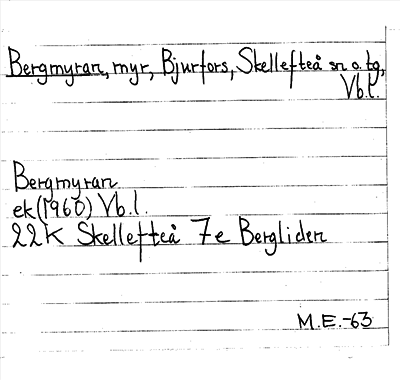 Bergmyran, myr, Bjurfors, Skellefteå sn o. tg,
Vb.l.
Bergmyran
ek (1960) Vb.l.
22K Skellefteå 7e Bergliden
M.E.-63